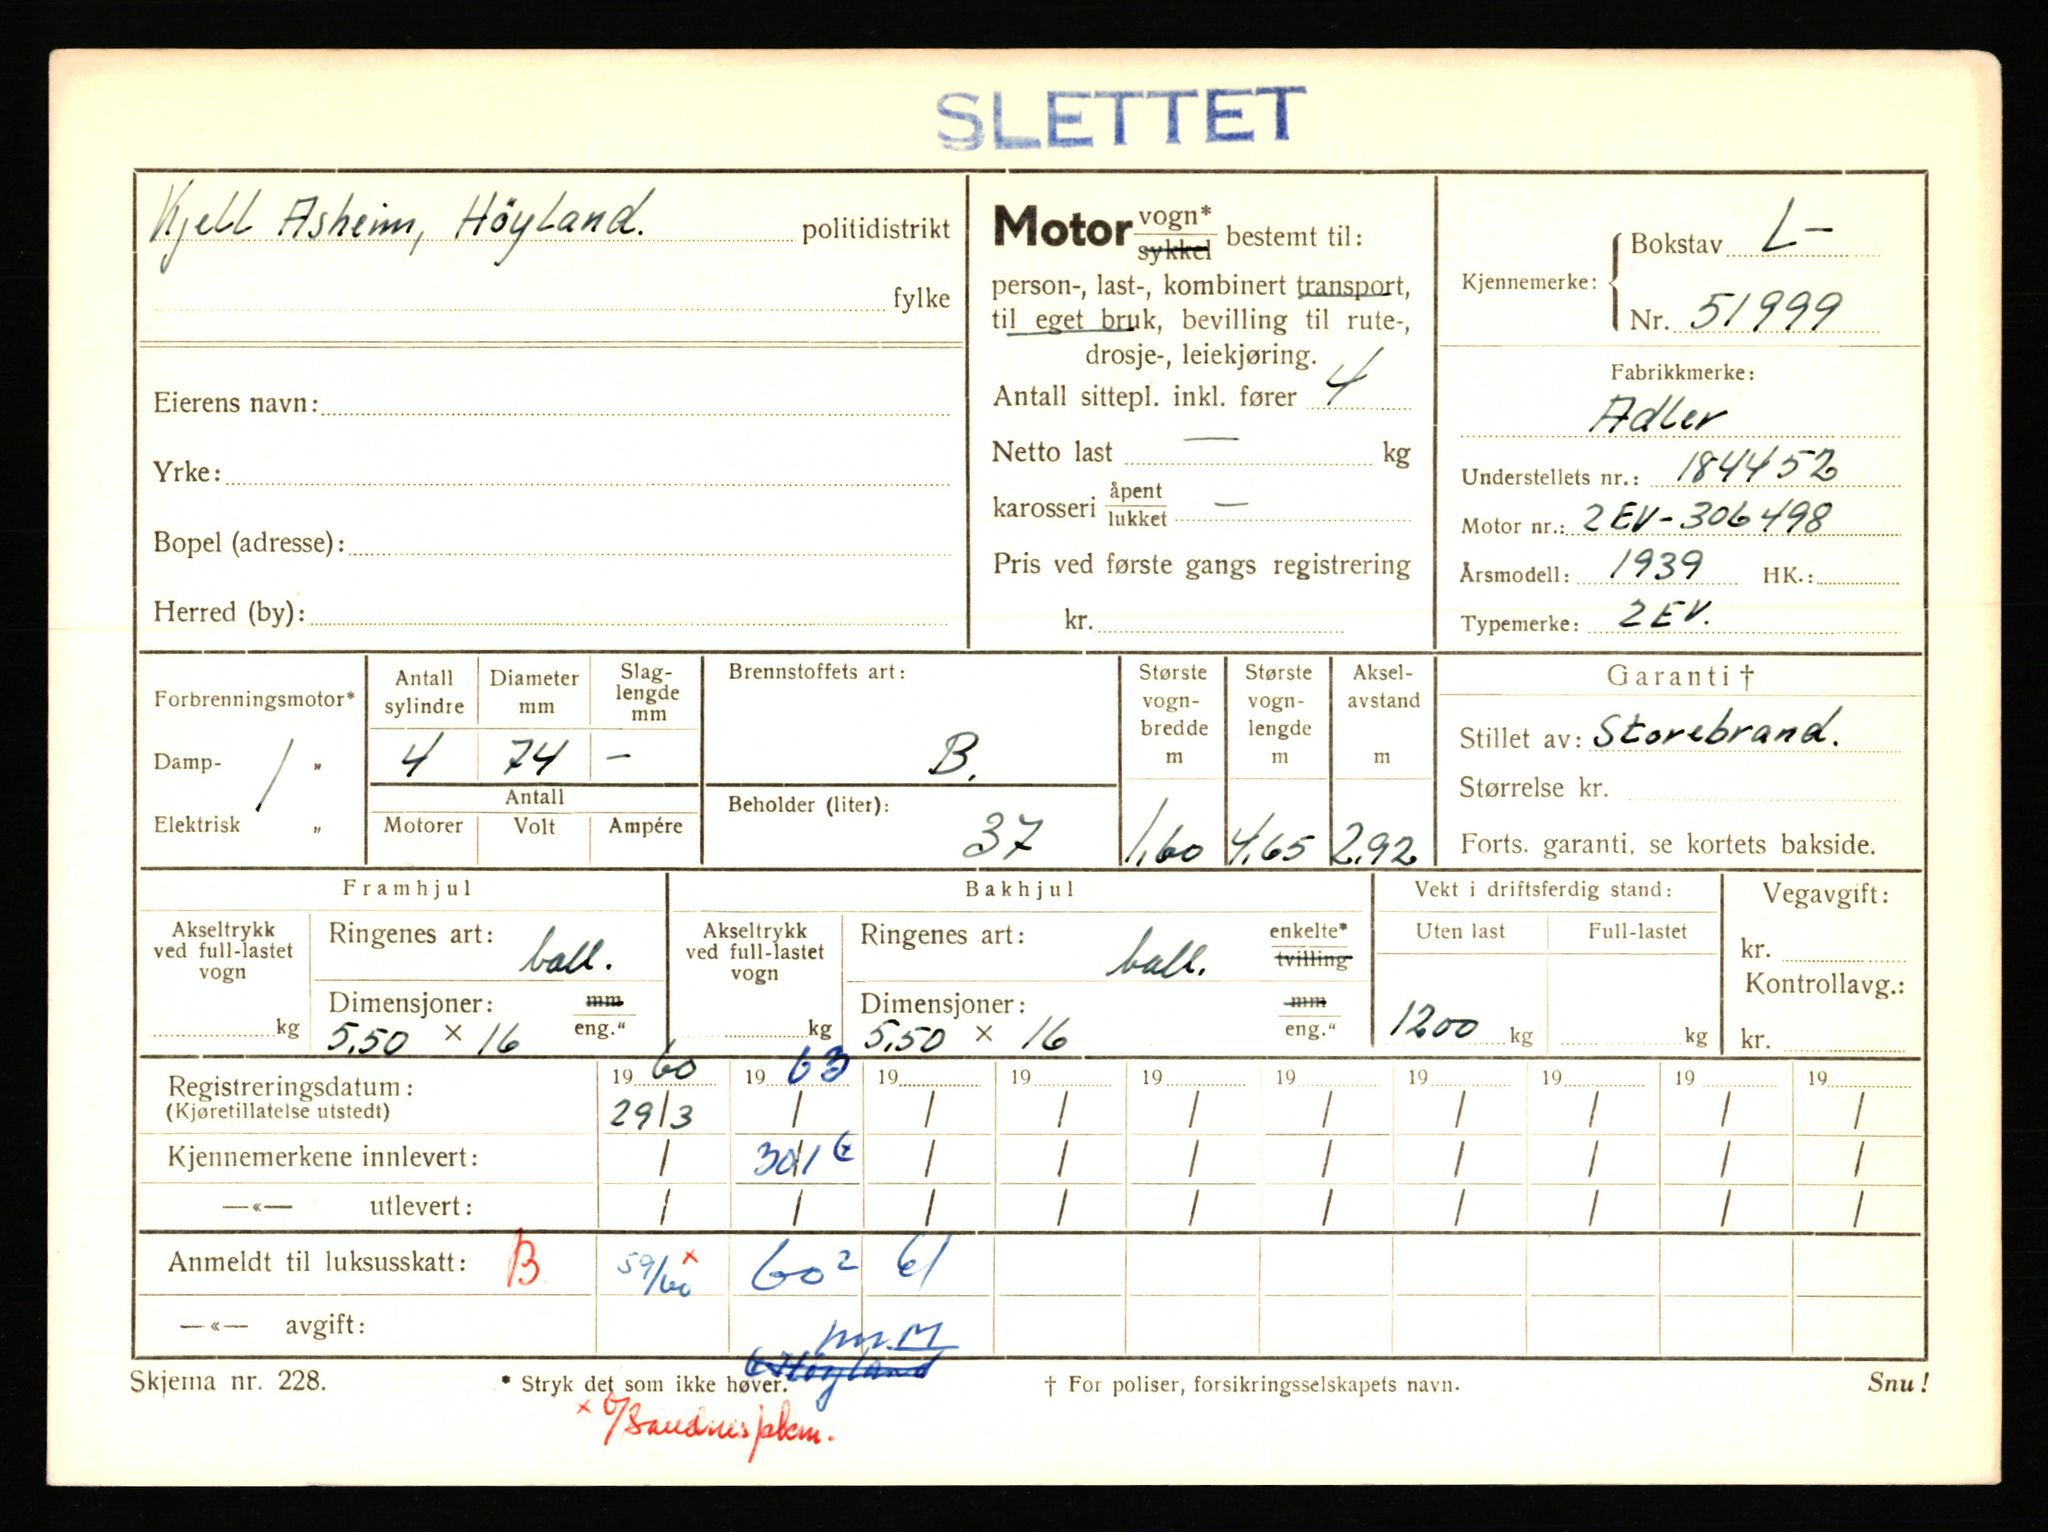 SLETTET
Kjell Asheim, Höyland. politidistrikt
fylke
Eierens navn:
Yrke:
Bopel (adresse):
Herred (by):
Motor vogn* sykkel bestemt til:
person-, last-, kombinert transport,
til eget bruk, bevilling til rute-,
drosje-, leiekjøring.
Antall sittepl. inkl. fører 4
Netto last — kg
karosseri åpent lukket —
Pris ved første gangs registrering
kr.
Kjennemerke: Bokstav L-
Nr. 51999
Fabrikkmerke:
Adler
Understellets nr.: 184452
Motor nr.: 2EV-306498
Årsmodell: 1939 HK.:
Typemerke: 2EV.
Forbrenningsmotor*
Damp- / „
Elektrisk „
Antall sylindre
Diameter mm
Slag-lengde mm
4 74 —
Antall
Motorer Volt Ampére
Brennstoffets art:
B.
Beholder (liter):
37
Største vogn-bredde m
1,60
Største vogn-lengde m
4,65
Aksel-avstand m
2,92
Garanti †
Stillet av: Storebrand.
Størrelse kr.
Forts. garanti, se kortets bakside.
Framhjul
Akseltrykk ved full-lastet vogn
kg
Ringenes art: ball.
Dimensjoner: mm eng."
5,50 × 16
Bakhjul
Akseltrykk ved full-lastet vogn
kg
Ringenes art: ball. enkelte* tvilling
Dimensjoner: mm eng."
5,50 × 16
Vekt i driftsferdig stand:
Uten last Full-lastet
1200 kg kg
Vegavgift:
kr.
Kontrollavg.:
kr.
Registreringsdatum: 19 60 19 63 19 19 19 19 19 19 19 19
(Kjøretillatelse utstedt) 29/3 / / / / / / / / /
Kjennemerkene innlevert: / 30/1 / / / / / / / /
—«— utlevert: / / / / / / / / / /
Anmeldt til luksusskatt: B 59/60 × 60² 61
—«— avgift:
Höyland
Skjema nr. 228. * Stryk det som ikke høver. † For poliser, forsikringsselskapets navn. Snu!
× Sandnes